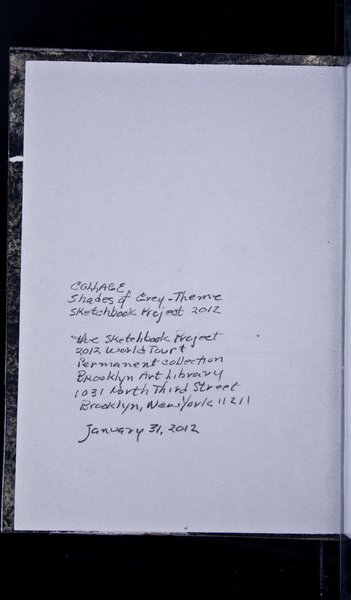 COLLAGE
Shades of Grey - Theme
Sketchbook Project 2012
The Sketchbook Project
2012 World Tour &
Permanent Collection
Brooklyn Art Library
1031 North Third Street
Brooklyn, New York 11211
January 31, 2012